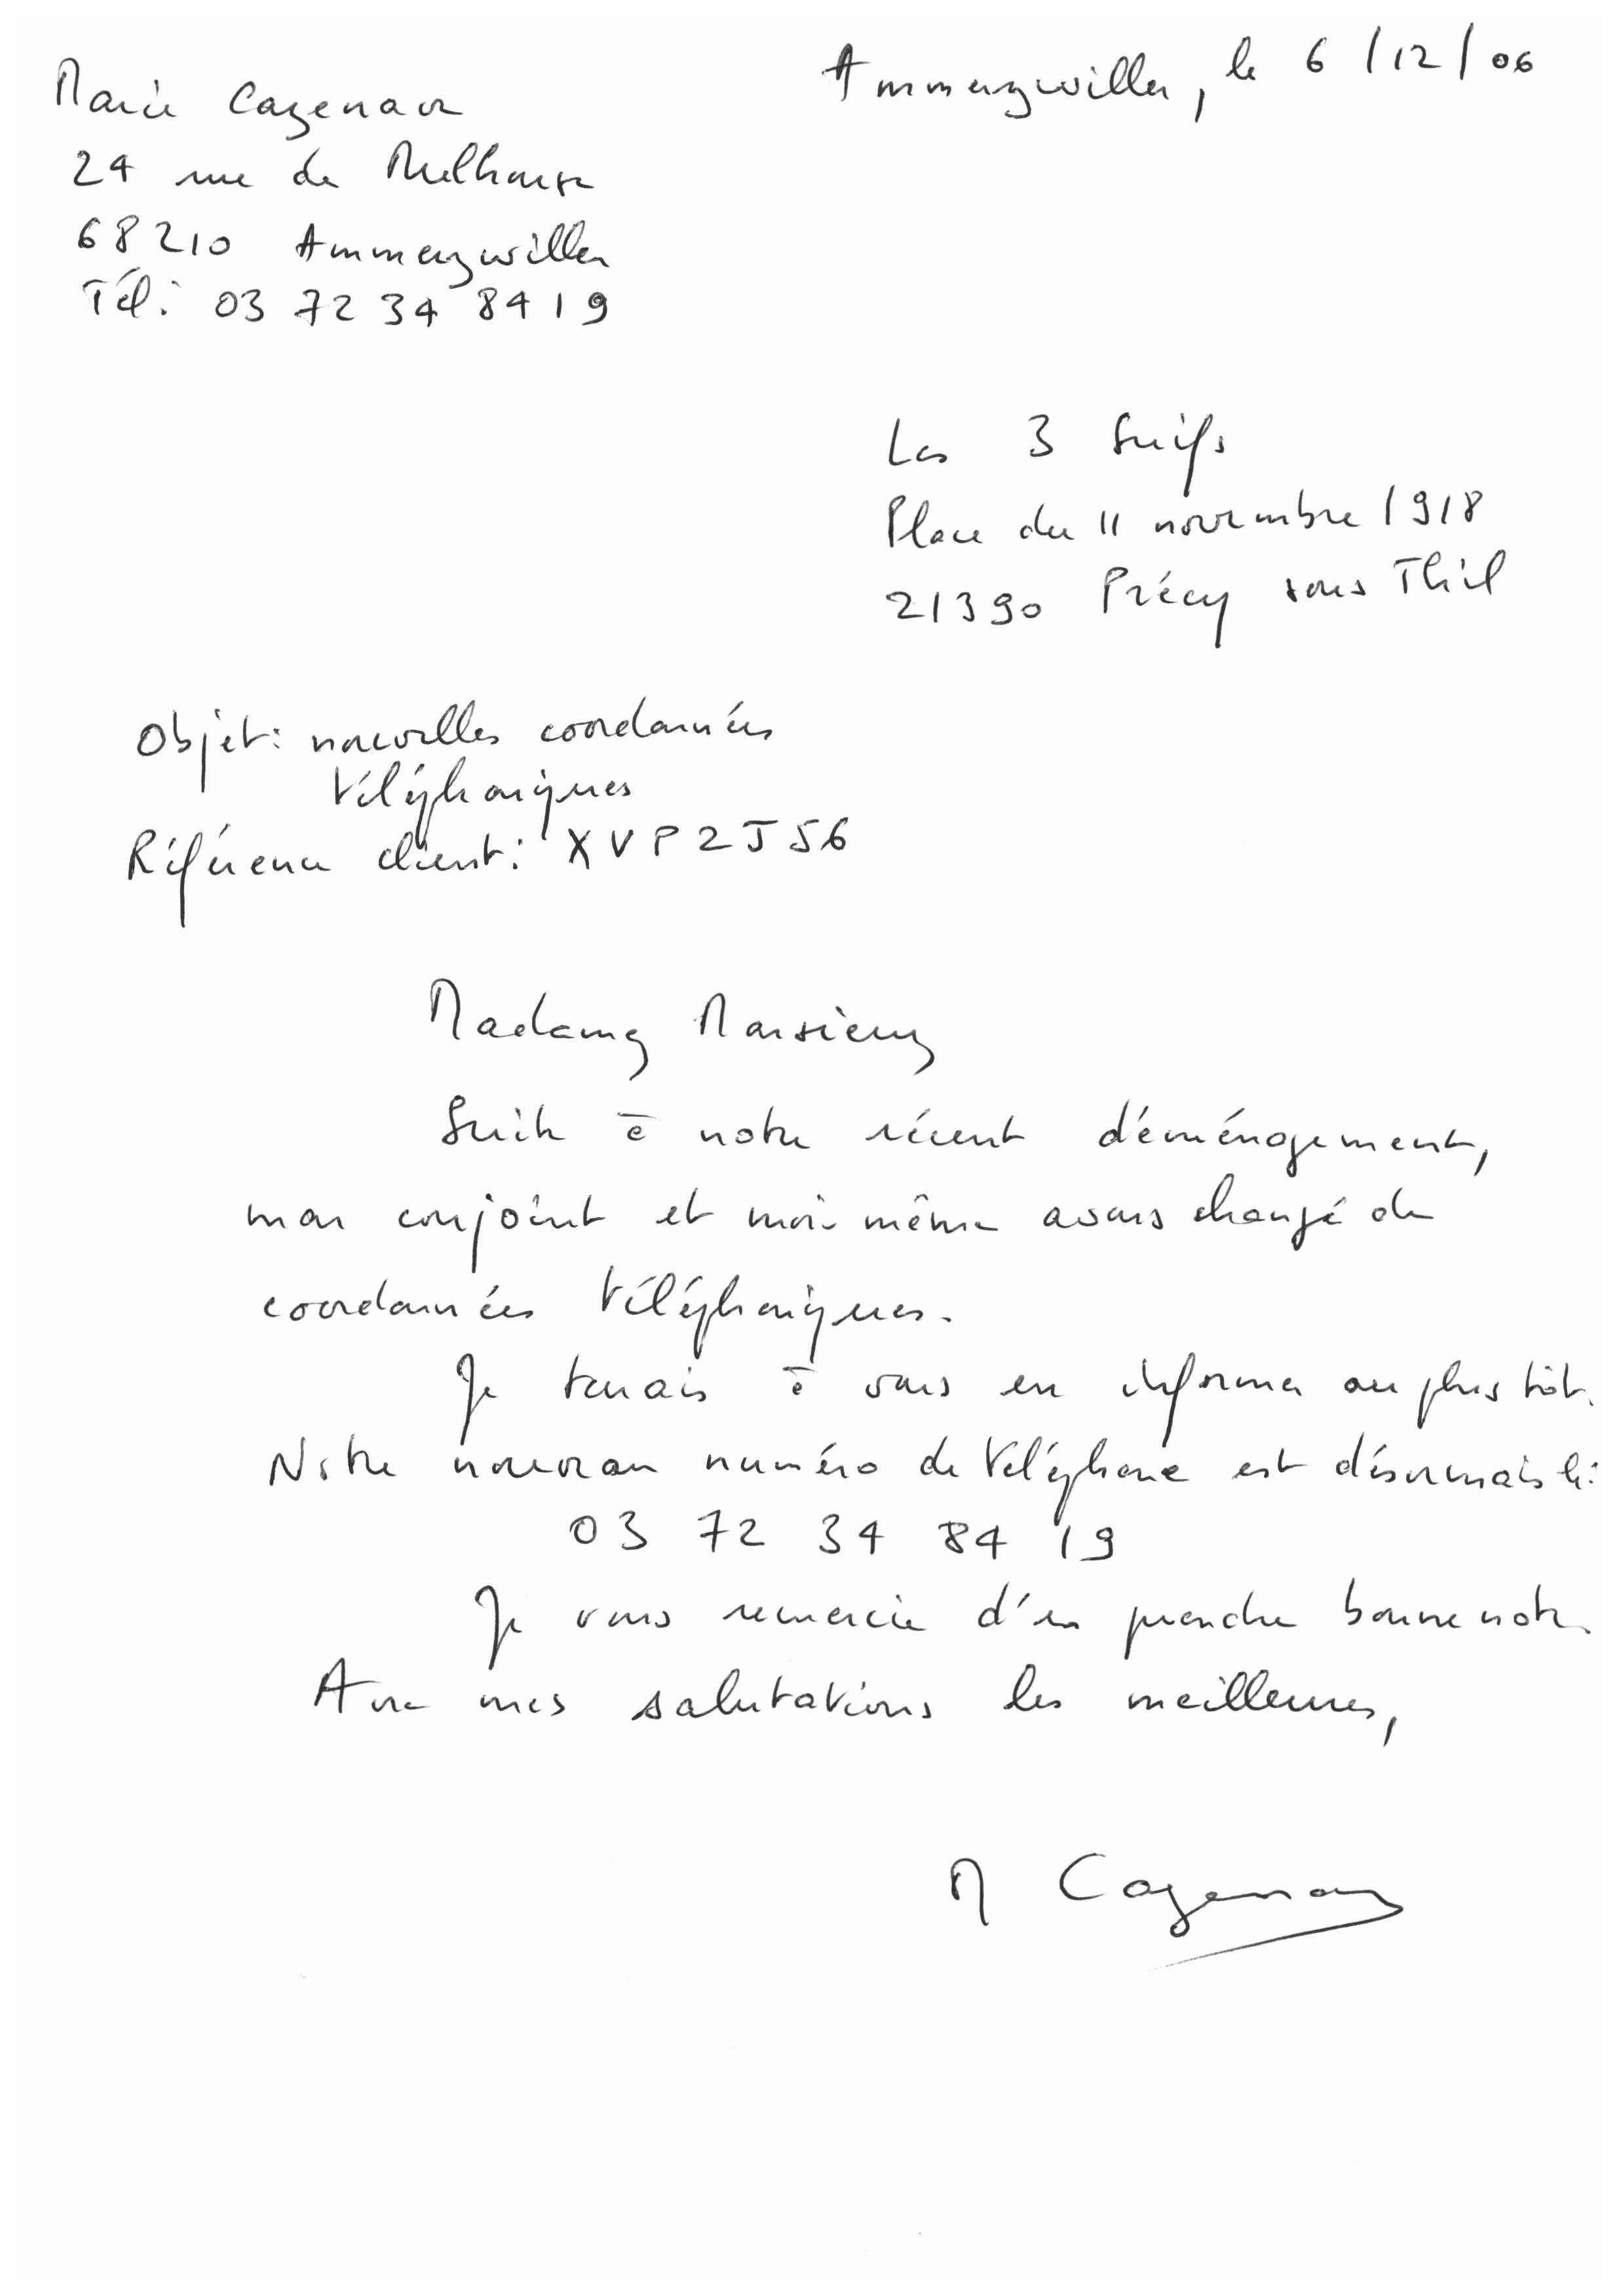 Marie Cazenave
24 rue de Mulhouse
68210 Ammerzwiller
Tél: 03 72 34 84 19
Ammerzwiller, le 6/12/06
Les 3 Suifs
Place du 11 novembre 1918
21390 Précy sous Thil
Objet: nouvelles coordonnées
téléphoniques
Référence client: XVP2J56
Madame, Monsieur,
Suite à notre récent déménagement,
mon conjoint et moi-même avons changé de
coordonnées téléphoniques.
Je tenais à vous en informer au plus tôt.
Notre nouveau numéro de téléphone est désormais le:
03 72 34 84 19
Je vous remercie d'en prendre bonne note.
Avec mes salutations les meilleures,
M Cazenave